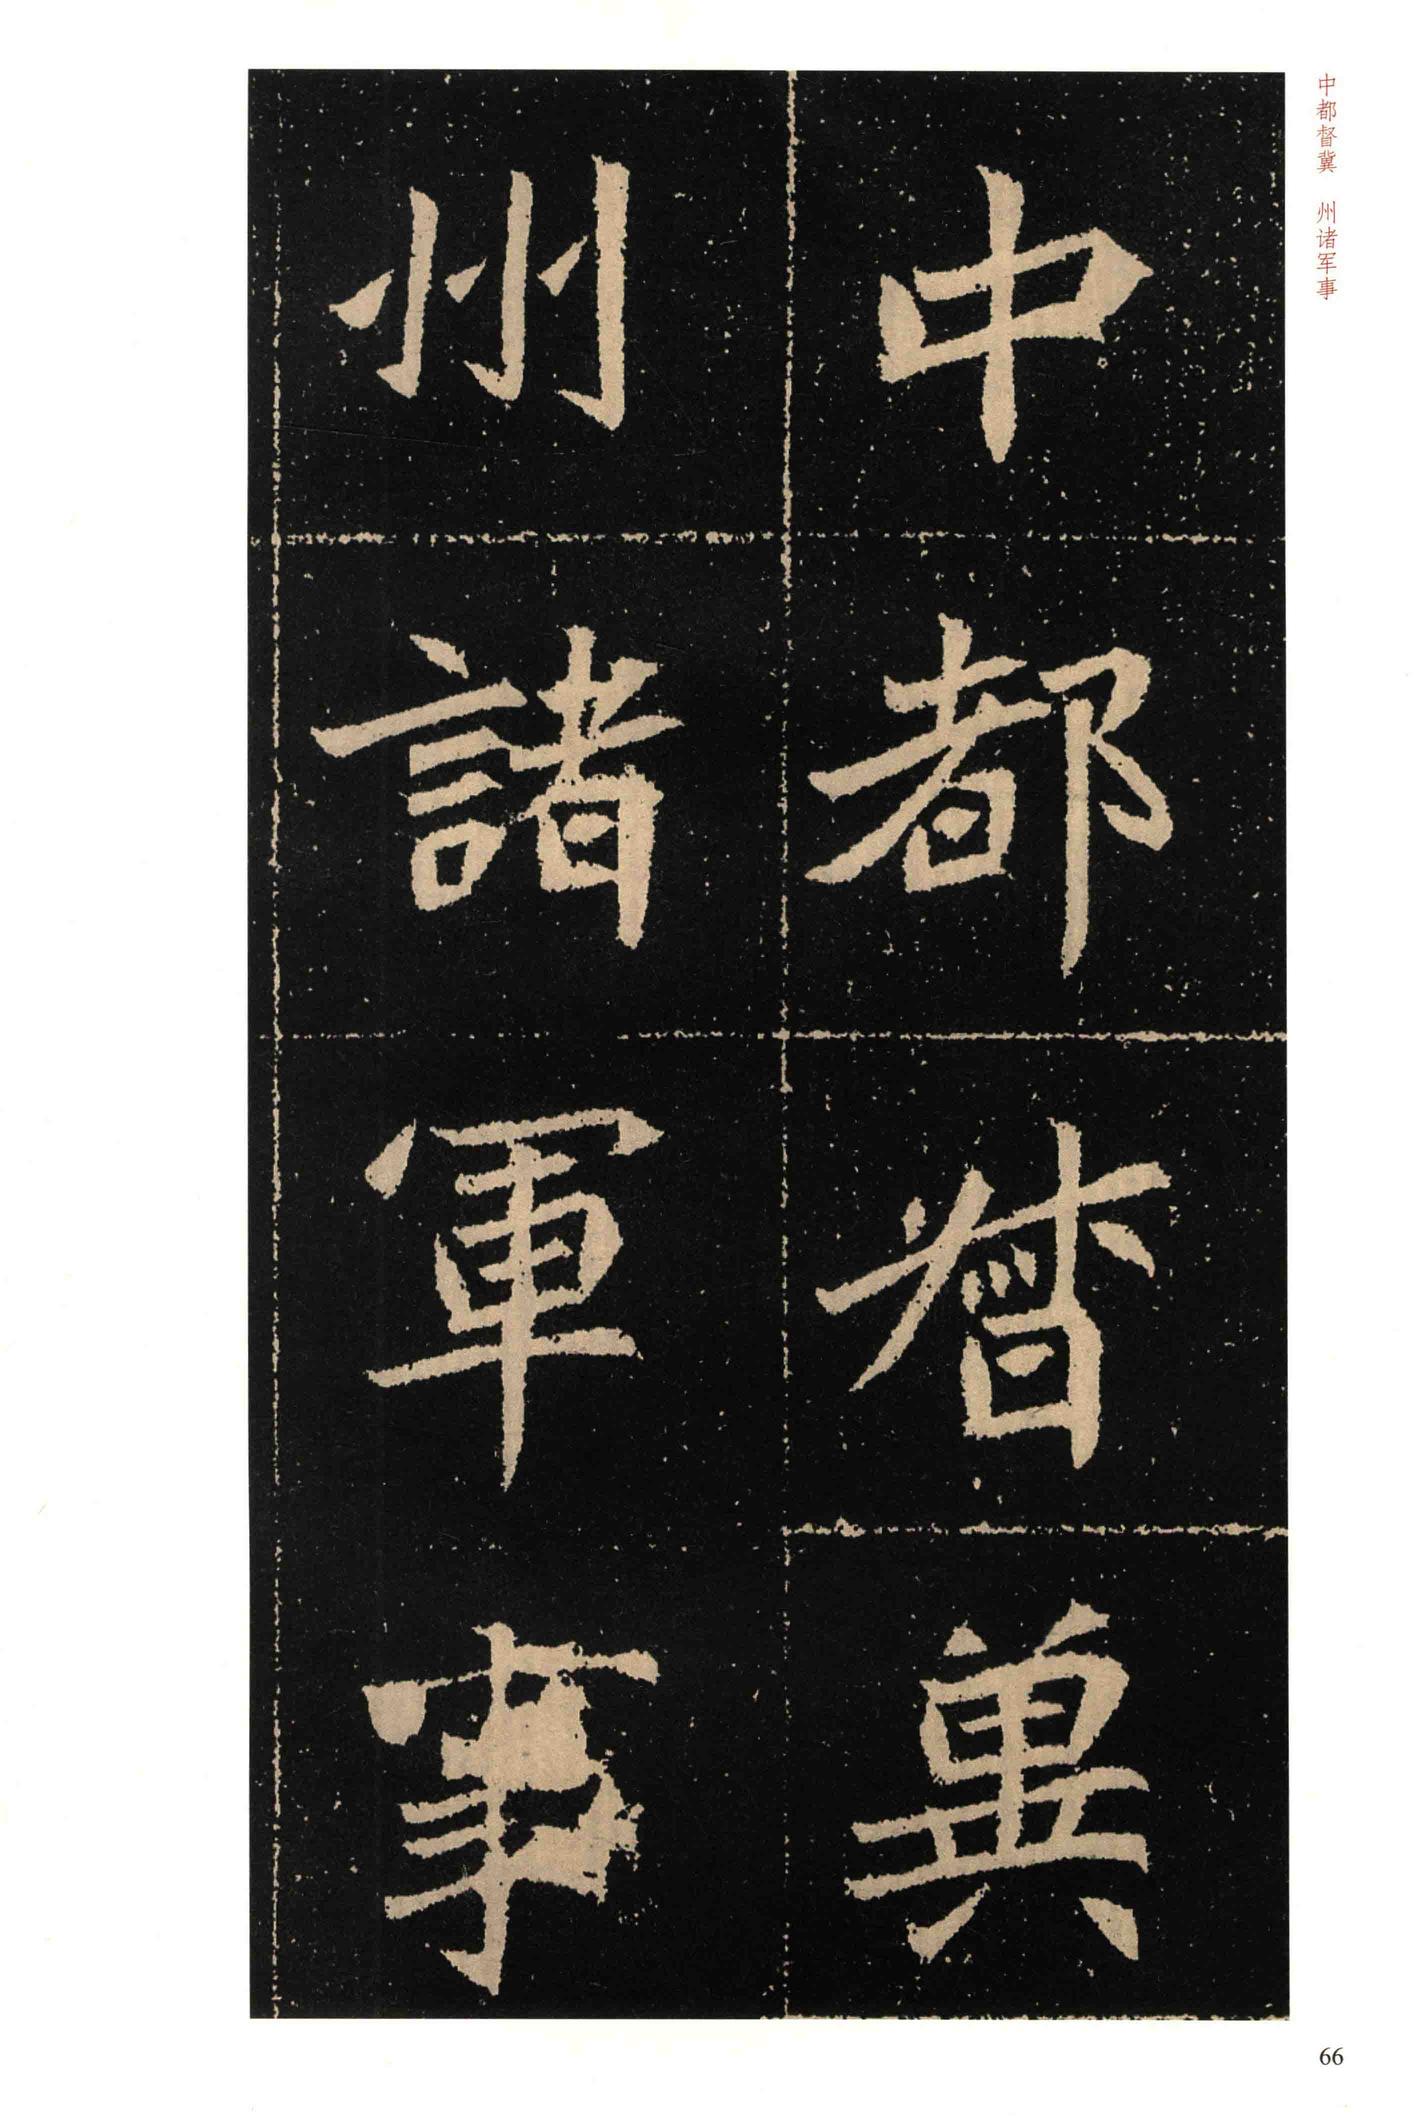 中都督冀
州諸軍事
中都督冀 州诸军事
66